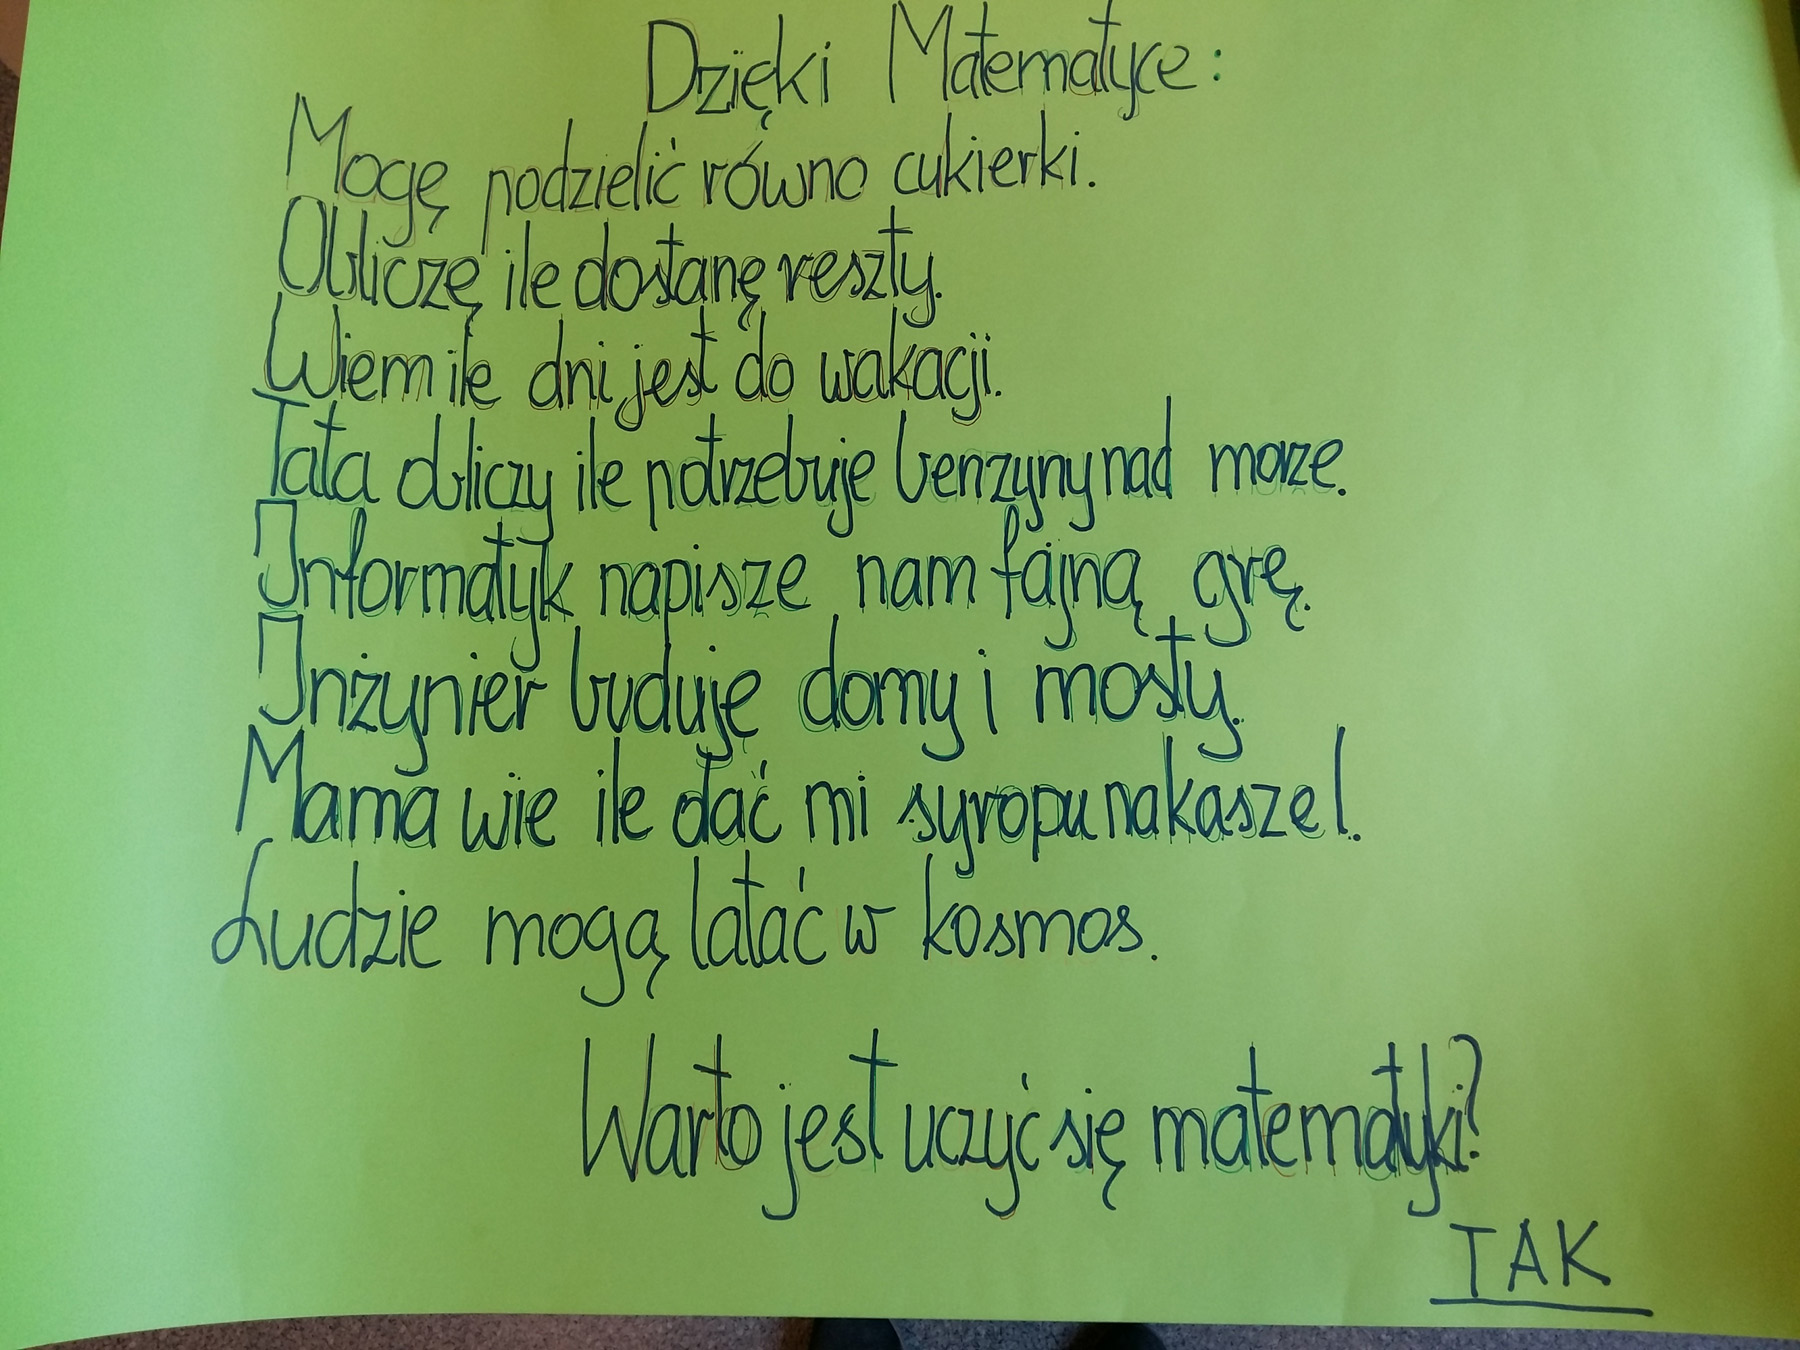 Dzięki Matematyce:
Mogę podzielić równo cukierki.
Obliczę ile dostanę reszty.
Wiem ile dni jest do wakacji.
Tata obliczy ile potrzebuje benzyny nad morze.
Informatyk napisze nam fajną grę.
Inżynier buduję domy i mosty.
Mama wie ile dać mi syropu na kaszel.
Ludzie mogą latać w kosmos.
Warto jest uczyć się matematyki?
TAK